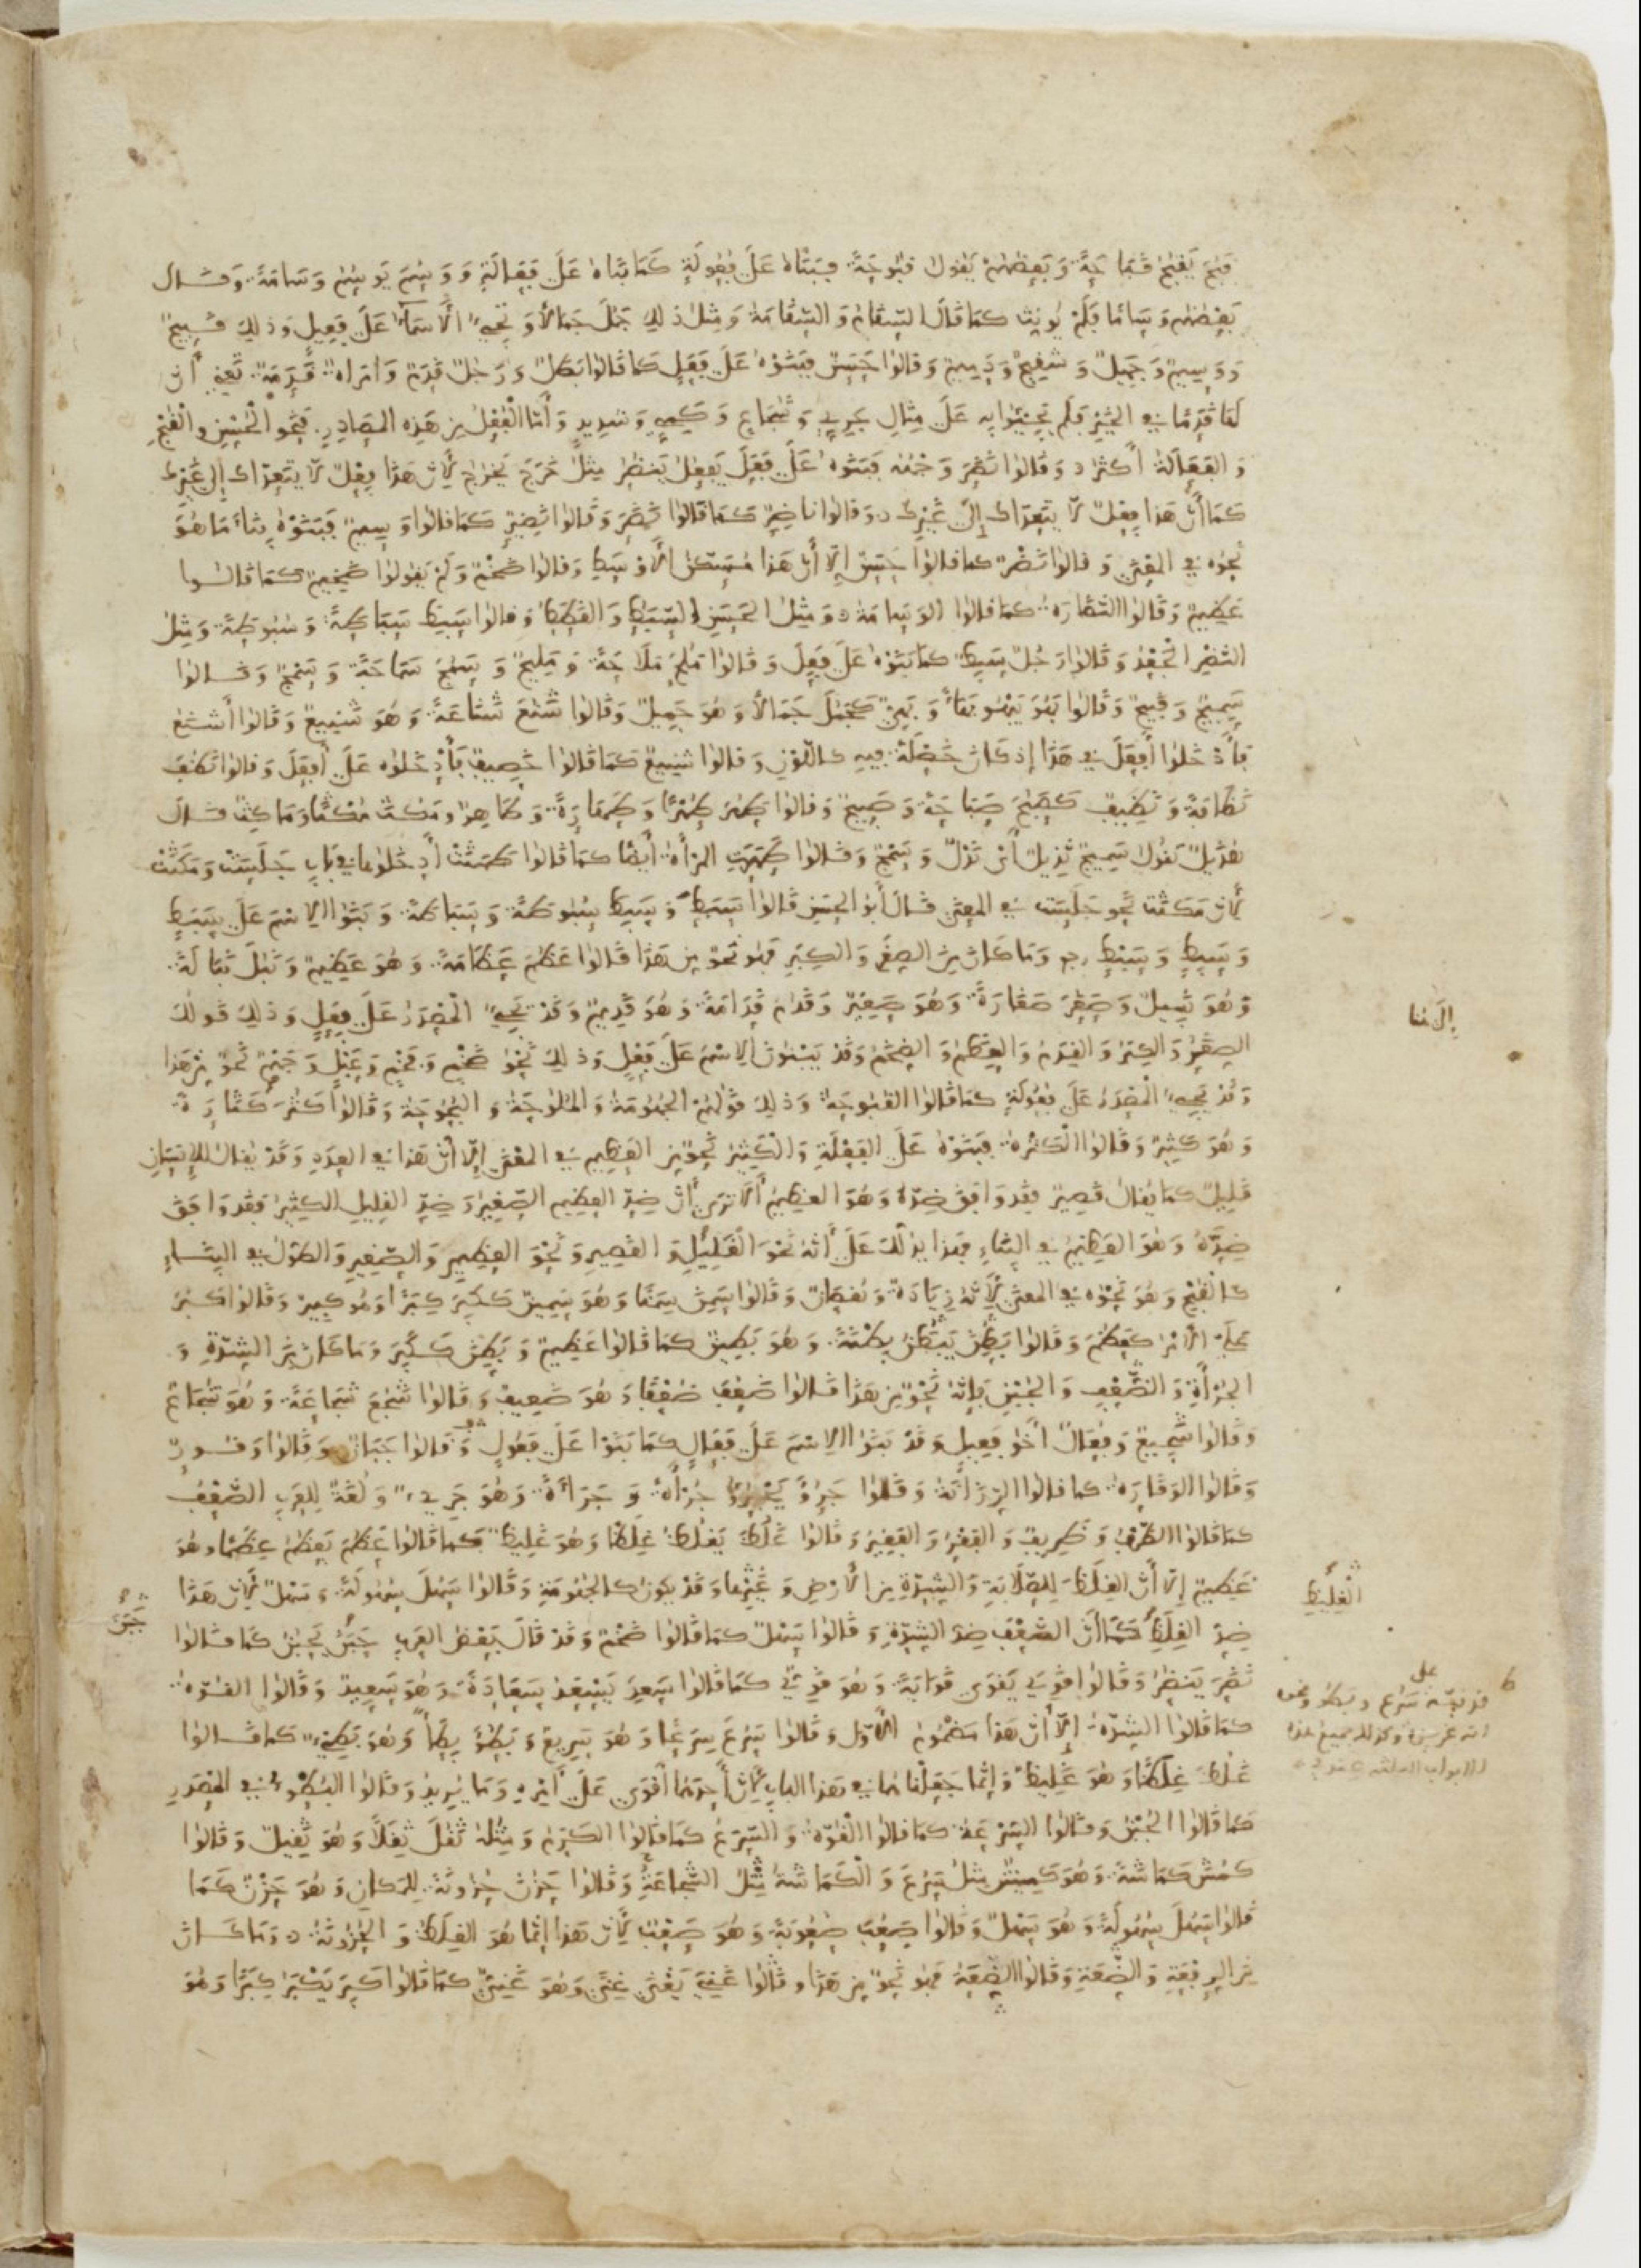 قبح يقبح قباحة وبعضهم يقول قبوحة فبناه على فعولة كما بناه على فعالة ووسم يوسم وسامة وقال
بعضهم وساما فلم يؤنث كما قال السقام والسقامة ومثل ذلك جمل جمالا وتجيء الأسماء على فعيل وذلك قبيح
ووسيم وجميل وشقيح ودميم وقالوا حسن فبنوه على فعل كما قالوا بطل ورجل قدم وامرأة قدمة تعني أن
لها قدما في الخير فلم يجيئوا به على مثال جريء وشجاع وكمي وشديد وأما الفعل من هذه المصادر فنحو الحسن والقبح
والفعالة أكثر وقالوا نضر وجهه فبنوه على فعل يفعل ينضر مثل خرج يخرج لأن هذا فعل لا يتعداك إلى غيرك
كما أن هذا فعل لا يتعداك إلى غيرك وقالوا ناضر كما قالوا نضر وقالوا نضير كما قالوا وسيم فبنوه بناء ما هو
نحوه في المعنى وقالوا نضر كما قالوا حسن إلا أن هذا مسكن الأوسط وقالوا ضخم ولم يقولوا ضخيم كما قالوا
عظيم وقالوا النضارة كما قالوا الوسامة ومثل الحسن السبط والقطط وقالوا سبط سباطة وسبوطة ومثل
النضر الجعد وقالوا رجل سبط كما بنوه على فعل وقالوا ملح ملاحة ومليح وسمج سماجة وسمج وقالوا
سميج وقبيح وقالوا بهو يبهو بهاء وبهي كجمل جمالا وهو جميل وقالوا شنع شناعة وهو شنيع وقالوا أشنع
فأدخلوا أفعل في هذا إذ كان خصلة فيه كاللون وقالوا شنيع كما قالوا خصيف فأدخلوه على أفعل وقالوا نظف
نظافة ونظيف كصبح صباحة وصبيح وقالوا طهر طهرا وطهارة وطاهر ومكث مكثا وماكث قال
هذيل تقول سميج نذيل أي نذل وسمج وقالوا طهرت المرأة أيضا كما قالوا طمثت أدخلوها في باب جلست ومكثت
لأن مكثت نحو جلست في المعنى قال أبو الحسن قالوا سبط وسبط سبوطة وسباطة وبنوا الاسم على سبط
وسبط وسبط رجع وما كان من الصغر والكبر فهو نحو من هذا قالوا عظم عظامة وهو عظيم ونبل نبالة
وهو نبيل وصغر صغارة وهو صغير وقدم قدامة وهو قديم وقد يجيء المصدر على فعل وذلك قولك
الصغر والكبر والقدم والعظم والضخم وقد يبنون الاسم على فعل وذلك نحو ضخم وفخم وعبل وجهم نحو من هذا
وقد يجيء المصدر على فعولة كما قالوا القبوحة وذلك قولهم الجهومة والملوحة والبحوحة وقالوا كثر كثارة
وهو كثير وقالوا الكثرة فبنوه على الفعلة والكثير نحو من العظيم في المعنى إلا أن هذا في العدد وقد يقال للإنسان
قليل كما يقال قصير فقد وافق ضده وهو العظيم ألا ترى أن ضد العظيم الصغير وضد القليل الكثير فقد وافق
ضده وهو العظيم في البناء فهذا يدلك على أنه نحو القليل والقصير ونحو العظيم والصغير والطول في البناء
كالقبح وهو نحوه في المعنى لأنه زيادة ونقصان وقالوا سمن سمنا وهو سمين ككبر كبرا وهو كبير وقالوا كبر
علي الأمر كعظم وقالوا بطن يبطن بطنة وهو بطين كما قالوا عظيم وبطن ككبر وما كان من الشدة و
الجرأة والضعف والجبن فإنه نحو من هذا قالوا ضعف ضعفا وهو ضعيف وقالوا شجع شجاعة وهو شجاع
وقالوا شجيع وفعال أخو فعيل وقد بنوا الاسم على فعال كما بنوا على فعول وقالوا جبان وقالوا وقور
وقالوا الوقارة كما قالوا الرزانة وقالوا جرؤ يجرؤ جرأة وجراءة وهو جريء ولغة للعرب الضعف
كما قالوا الظرف وظريف والفقر والفقير وقالوا غلظ يغلظ غلظا وهو غليظ كما قالوا عظم يعظم عظما وهو
عظيم إلا أن الغلظ للصلابة والشدة من الأرض وغيرها وقد يكون كالجهومة وقالوا سهل سهولة وسهل لأن هذا
ضد الغلظ كما أن الضعف ضد الشدة وقالوا سهل كما قالوا ضخم وقد قال بعض العرب جبن يجبن كما قالوا
نضر ينضر وقالوا قوي يقوى قواية وهو قوي كما قالوا سعد يسعد سعادة وهو سعيد وقالوا القوة
كما قالوا الشدة إلا أن هذا مضموم الأول وقالوا سرع سرعا وهو سريع وبطؤ بطأ وهو بطيء كما قالوا
غلظ غلظا وهو غليظ وإنما جعلناهما في هذا الباب لأن أحدهما أقوى على أمره وما يريد وقالوا البطء في المصدر
كما قالوا الجبن وقالوا السرعة كما قالوا القوة والسرع كما قالوا الكرم ومثله ثقل ثقلا وهو ثقيل وقالوا
كمش كماشة وهو كميش مثل سرع والكماشة مثل الشجاعة وقالوا حزن حزونة للمكان وهو حزن كما
قالوا سهل سهولة وهو سهل وقالوا صعب صعوبة وهو صعب لأن هذا إنما هو الغلظ والحزونة وما كان
من الرفعة والضعة وقالوا الضعة فهو نحو من هذا وقالوا غني يغنى غنى وهو غني كما قالوا كبر يكبر كبرا وهو
إلى هنا
الغليظ
جبن